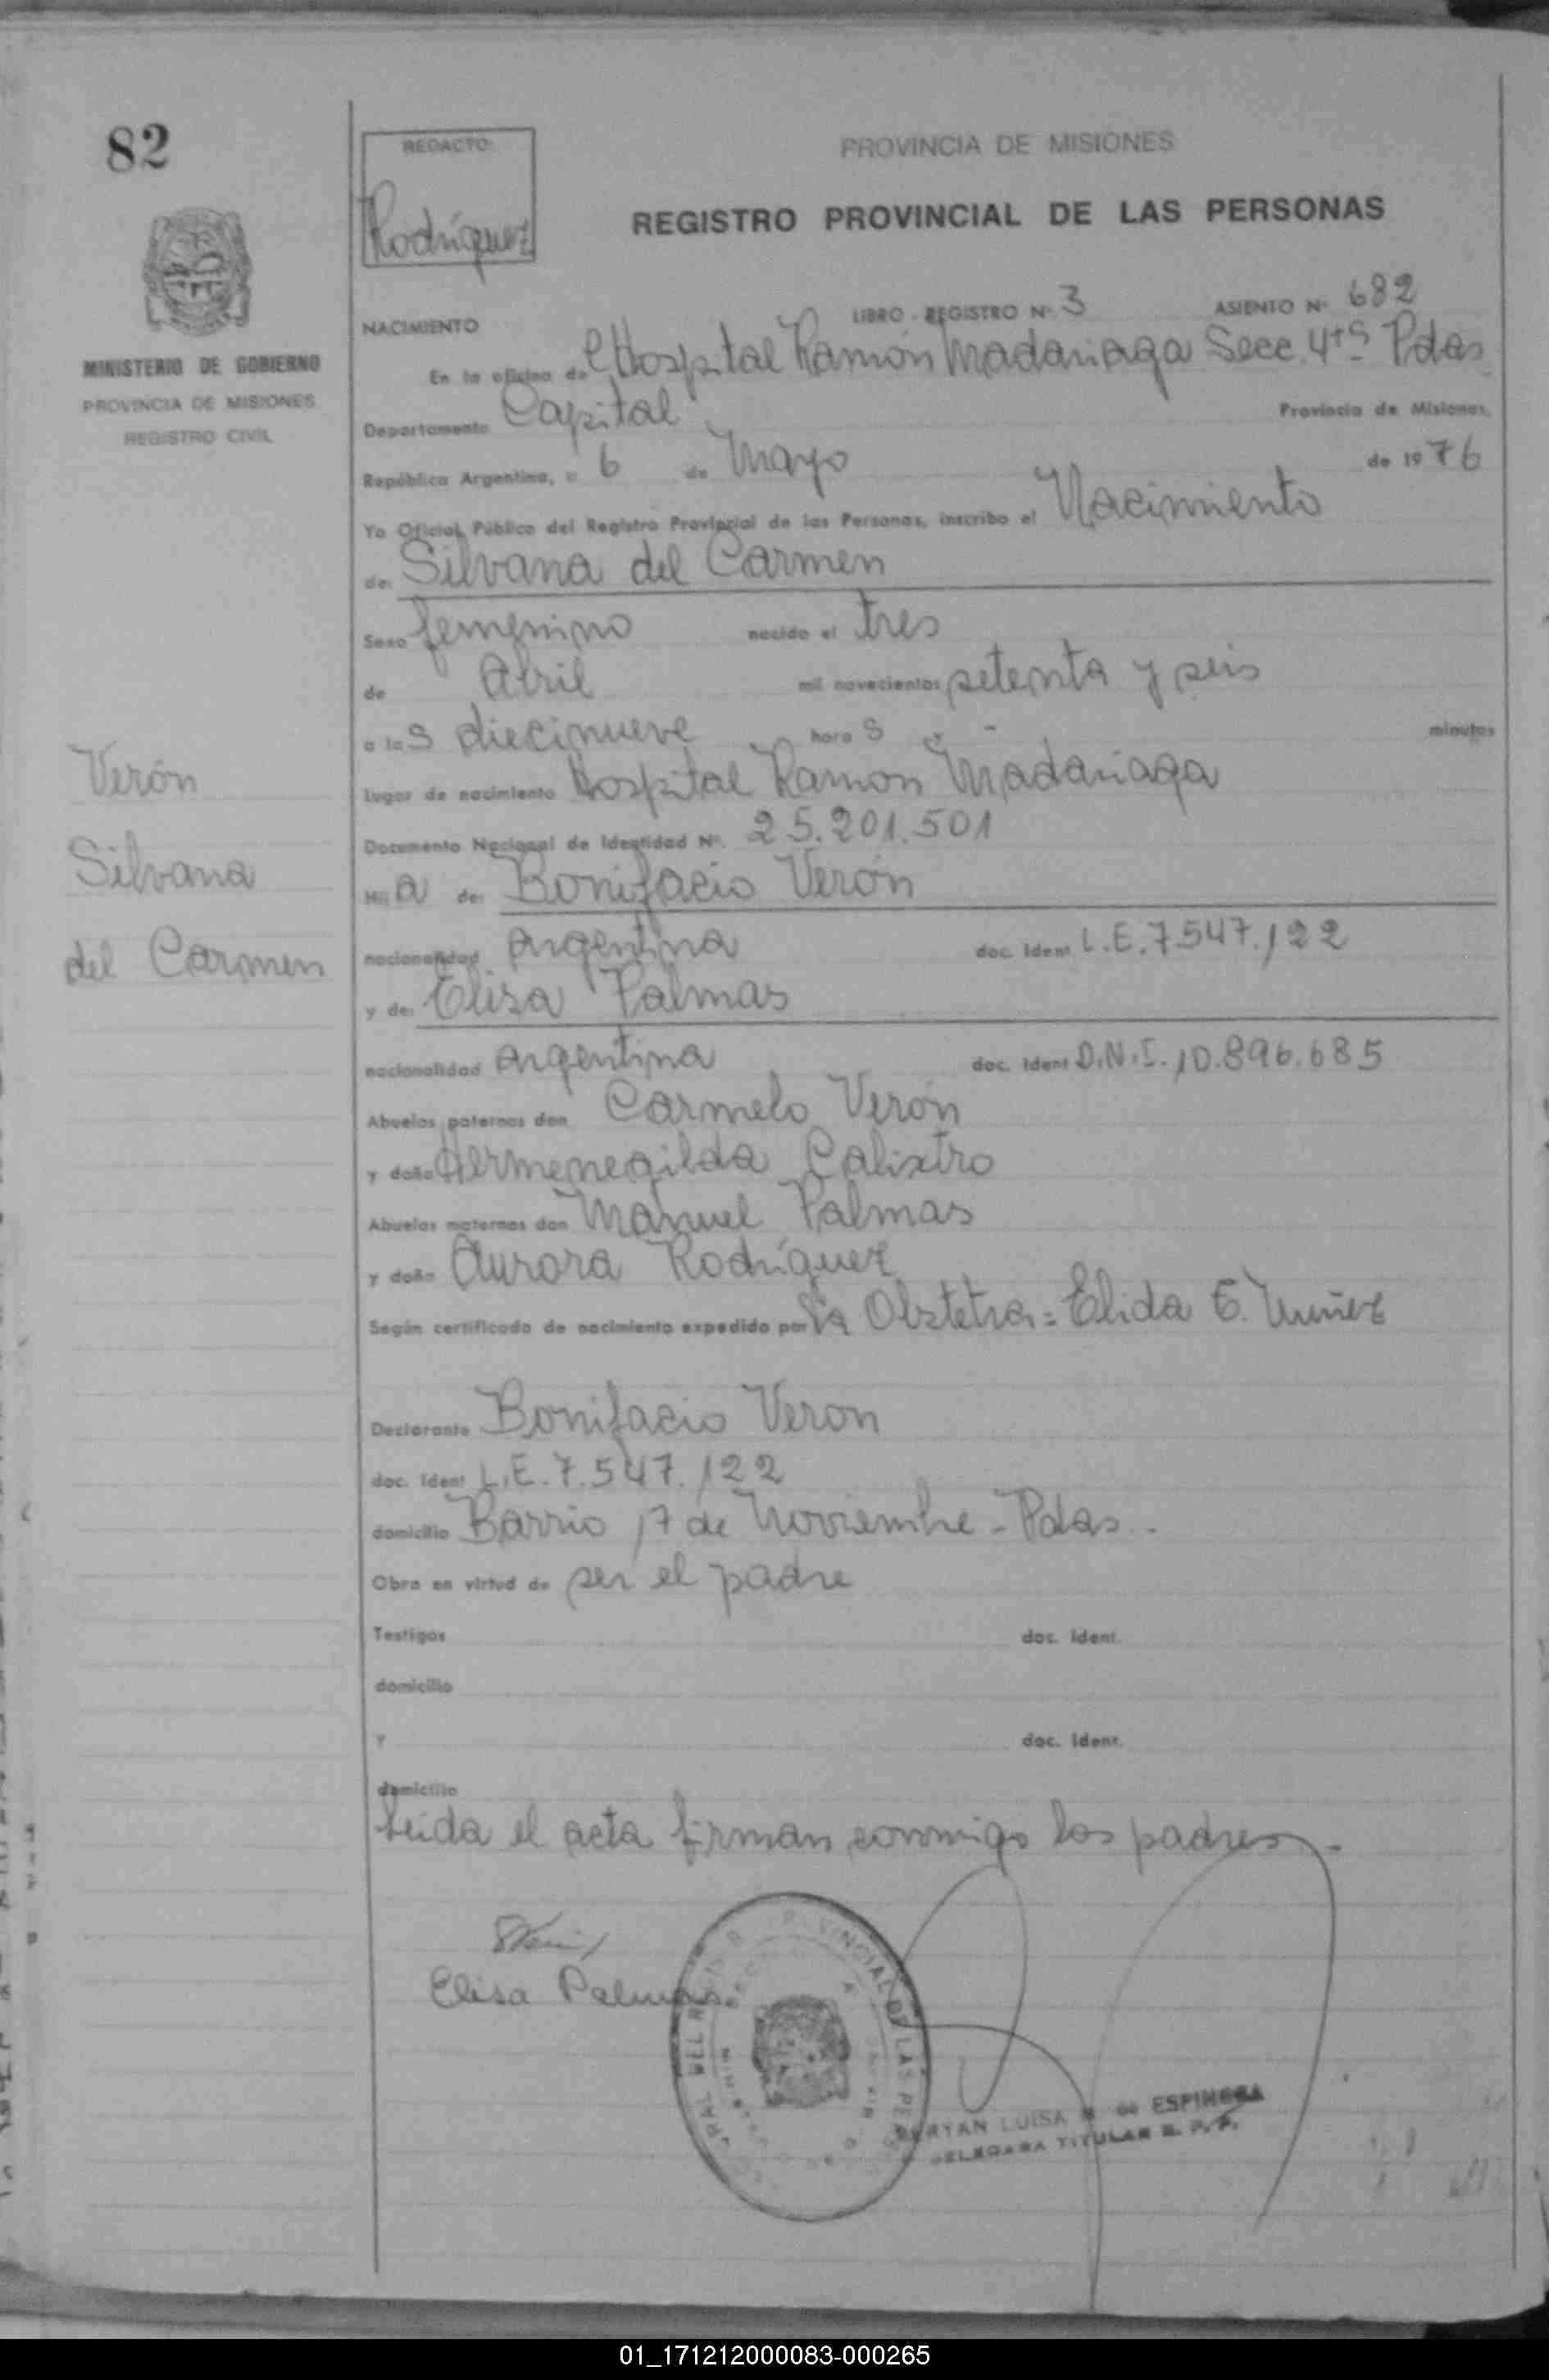 82
REDACTO:
Rodríguez
PROVINCIA DE MISIONES
REGISTRO PROVINCIAL DE LAS PERSONAS
MINISTERIO DE GOBIERNO
PROVINCIA DE MISIONES
REGISTRO CIVIL
NACIMIENTO LIBRO - REGISTRO Nº 3 ASIENTO Nº 682
En la oficina de Hospital Ramón Madariaga Secc. 4ta Pdas
Departamento Capital Provincia de Misiones,
República Argentina, a 6 de Mayo de 1976
Yo Oficial Público del Registro Provincial de las Personas, inscribo el Nacimiento
de: Silvana del Carmen
Sexo femenino nacido el tres
de Abril mil novecientos setenta y seis
a las diecinueve horas y - minutos
Lugar de nacimiento Hospital Ramon Madariaga
Documento Nacional de Identidad Nº. 25.201.501
Hija de: Bonifacio Verón
nacionalidad Argentina doc. Ident L.E. 7.547.122
y de: Elisa Palmas
nacionalidad Argentina doc. Ident D.N.I. 10.896.685
Abuelos paternos don Carmelo Verón
y doña Hermenegilda Calixtro
Abuelos maternos don Manuel Palmas
y doña Aurora Rodríguez
Según certificado de nacimiento expedido por la Obstetra: Elida E. Nuñez
Verón
Silvana
del Carmen
Declarante Bonifacio Veron
doc. Ident L.E. 7.547.122
domicilio Barrio 17 de Noviembre - Pdas.-
Obra en virtud de ser el padre
Testigos doc. Ident.
domicilio
y doc. Ident.
domicilio
Leída el acta firman conmigo los padres.-
Elisa Palmas
PROVINCIAL DE LAS
LUISA de ESPINOSA
TITULAR R. P. P.
01_171212000083-000265